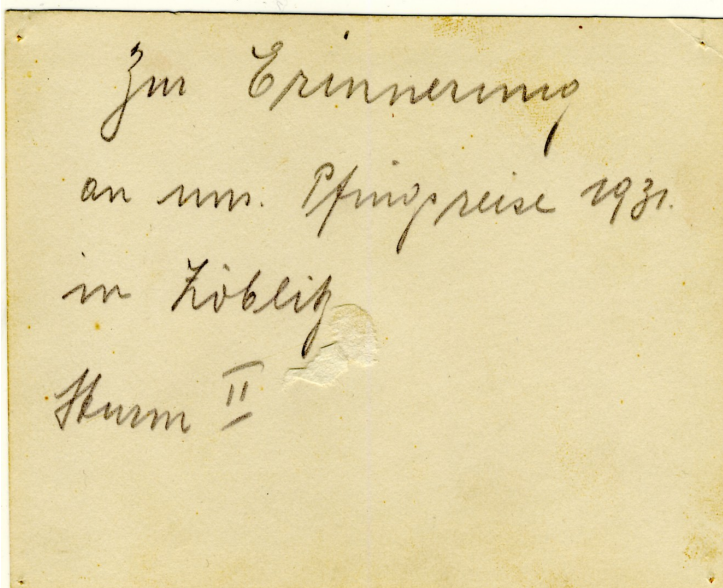 Zur Erinnerung
an uns. Pfingsreise 1931.
in Zöblitz
Sturm II